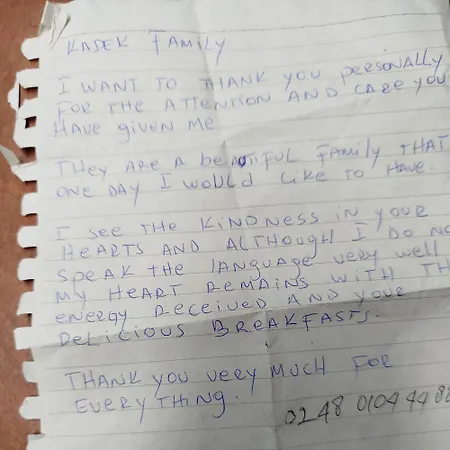 KADEK FAMILY
I WANT TO THANK YOU PERSONALLY
FOR THE ATTENTION AND CARE YOU
HAVE GIVEN ME
THEY ARE A BEAUTIFUL FAMILY THAT
ONE DAY I WOULD LIKE TO HAVE.
I SEE THE KINDNESS IN YOUR
HEARTS AND ALTHOUGH I DO NO
SPEAK THE LANGUAGE VERY WELL
MY HEART REMAINS WITH TH
ENERGY RECEIVED AND YOUR
DELICIOUS BREAKFASTS.
THANK YOU VERY MUCH FOR
EVERYTHING.
0248 0104 44 88